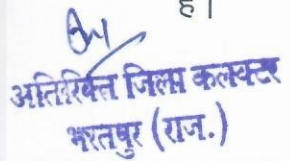 है।
अतिरिक्त जिला कलक्टर
भरतपुर (राज.)